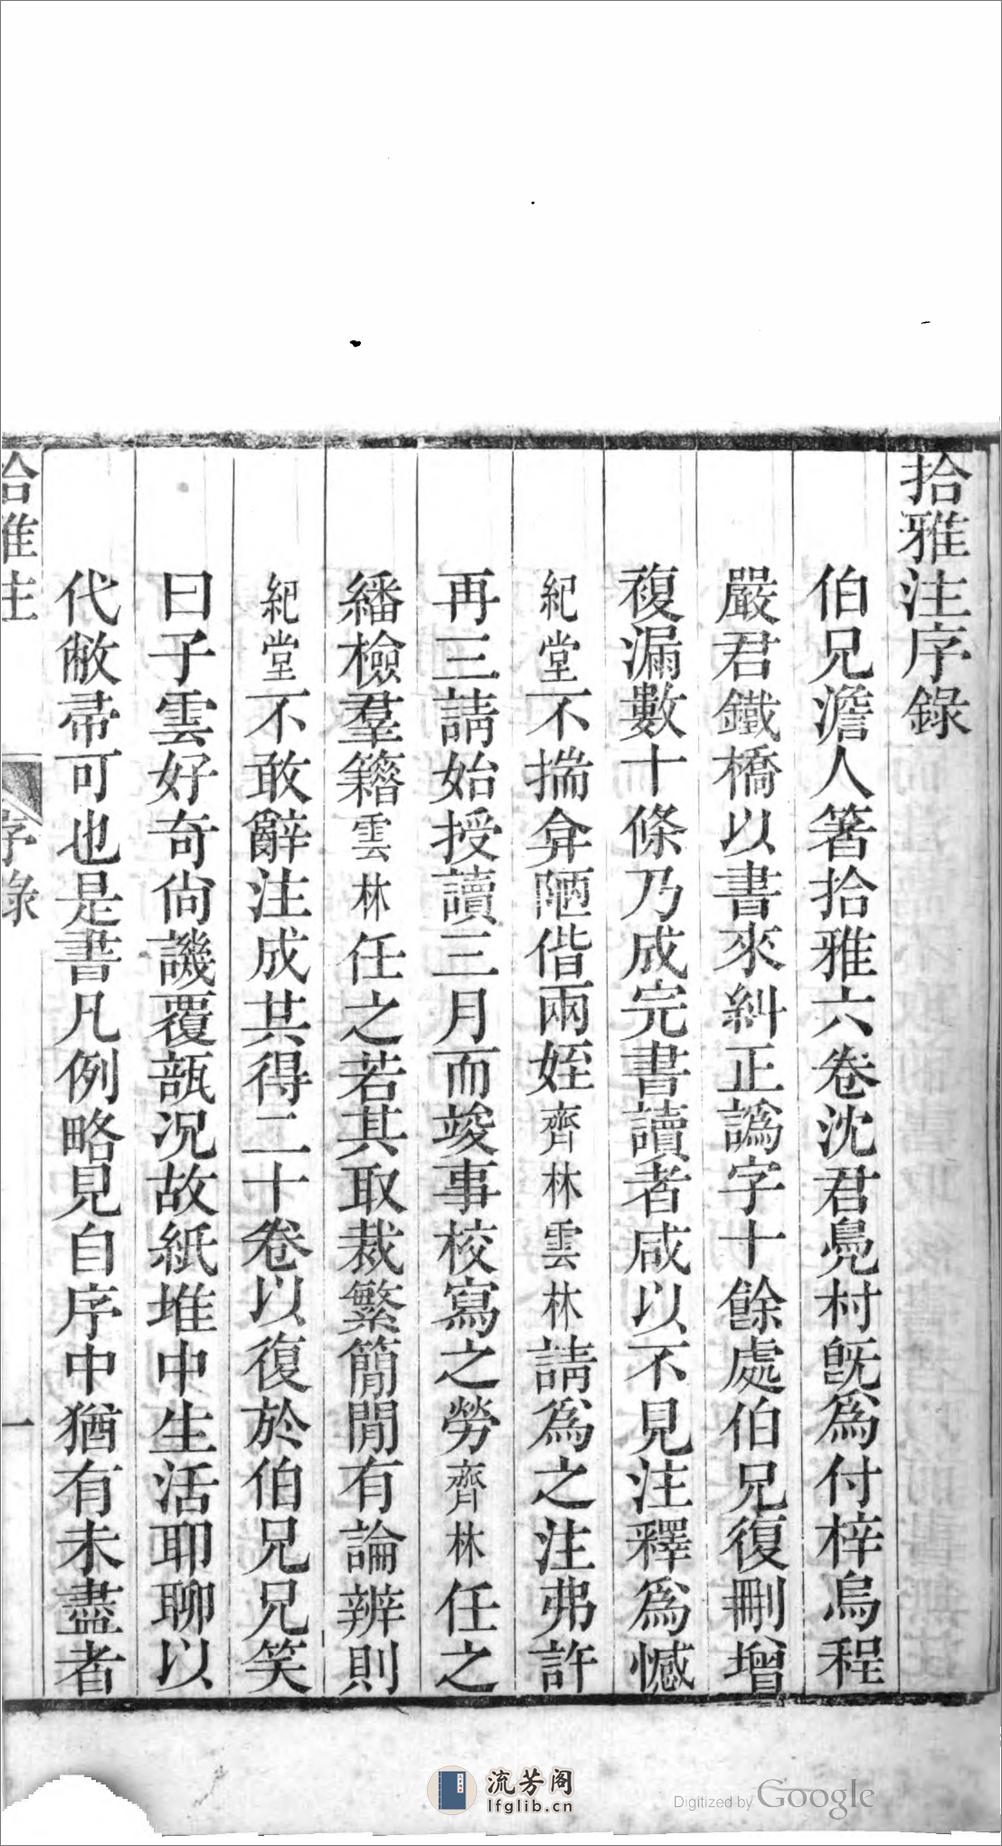 拾雅注序錄
伯兄澹人箸拾雅六卷沈君鳧村旣爲付梓烏程
嚴君鐵橋以書來糾正譌字十餘處伯兄復刪增
複漏數十條乃成完書讀者咸以不見注釋爲憾
紀堂不揣弇陋偕兩姪齊林雲林請爲之注弗許
再三請始授讀三月而竣事校寫之勞齊林任之
繙檢羣籍雲林任之若其取裁繁簡閒有論辨則
紀堂不敢辭注成其得二十卷以復於伯兄兄笑
曰子雲好奇尙譏覆瓿況故紙堆中生活耶聊以
代敝帚可也是書凡例略見自序中猶有未盡者
拾雅注
序錄
一
流芳阁
lfglib.cn
Digitized by Google